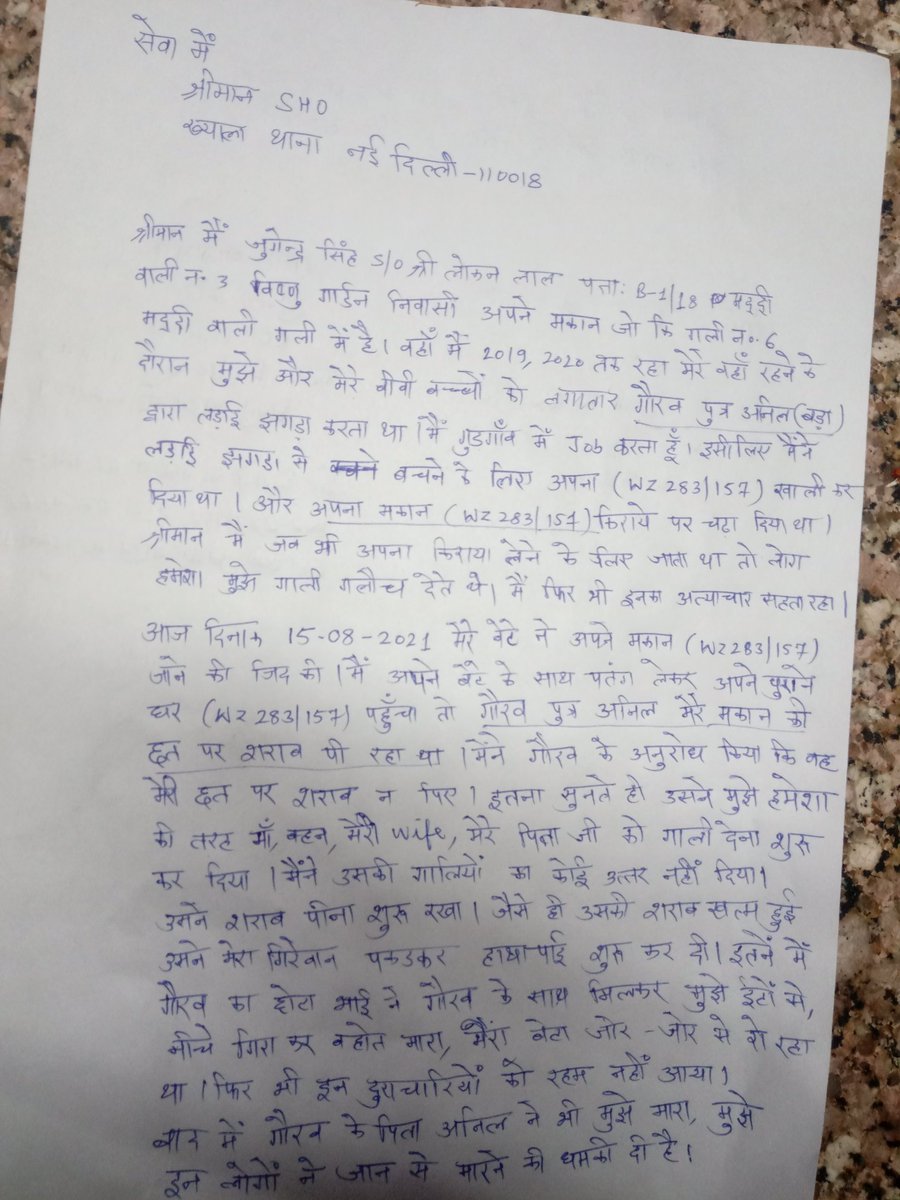 सेवा में
श्रीमान SHO
ख्याला थाना नई दिल्ली-110018
श्रीमान मैं जुगेन्द्र सिंह S/O श्री लोकन लाल पता: B-1/18 मद्दी
वाली न. 3 विष्णु गार्डन निवासी अपने मकान जो कि गली न. 6
मद्दी वाली गली में है। वहाँ मैं 2019, 2020 तक रहा मेरे वहाँ रहने के
दौरान मुझे और मेरे बीवी बच्चों को लगातार गौरव पुत्र अनिल (बड़ा)
द्वारा लड़ाई झगड़ा करता था। मैं गुड़गाँव में Job करता हूँ। इसीलिए मैंने
लड़ाई झगड़ा से बचने के लिए अपना (WZ 283/157) खाली कर
दिया था। और अपना मकान (WZ 283/157) किराये पर चढ़ा दिया था।
श्रीमान मैं जब भी अपना किराया लेने के लिए जाता था तो लोग
हमेशा मुझे गाली गलौच देते थे। मैं फिर भी इनका अत्याचार सहता रहा।
आज दिनाक 15-08-2021 मेरे बेटे ने अपने मकान (WZ 283/157)
जाने की जिद की। मैं अपने बेटे के साथ पतंग लेकर अपने पुराने
घर (WZ 283/157) पहुँचा तो गौरव पुत्र अनिल मेरे मकान की
छत पर शराब पी रहा था। मैंने गौरव के अनुरोध किया कि वह
मेरी छत पर शराब न पिए। इतना सुनते ही उसने मुझे हमेशा
की तरह माँ, बहन, मेरी wife, मेरे पिता जी को गाली देना शुरू
कर दिया। मैंने उसकी गालियों का कोई उत्तर नहीं दिया।
उसने शराब पीना शुरू रखा। जैसे ही उसकी शराब खत्म हुई
उसने मेरा गिरेवान पकडकर हाथापाई शुरू कर दी। इतने में
गौरव का छोटा भाई ने गौरव के साथ मिलकर मुझे ईटों से,
नीचे गिरा कर बहोत मारा, मेरा बेटा जोर-जोर से रो रहा
था। फिर भी इन दुराचारियों को रहम नहीं आया।
बाद में गौरव के पिता अनिल ने भी मुझे मारा, मुझे
इन लोगों ने जान से मारने की धमकी दी है।